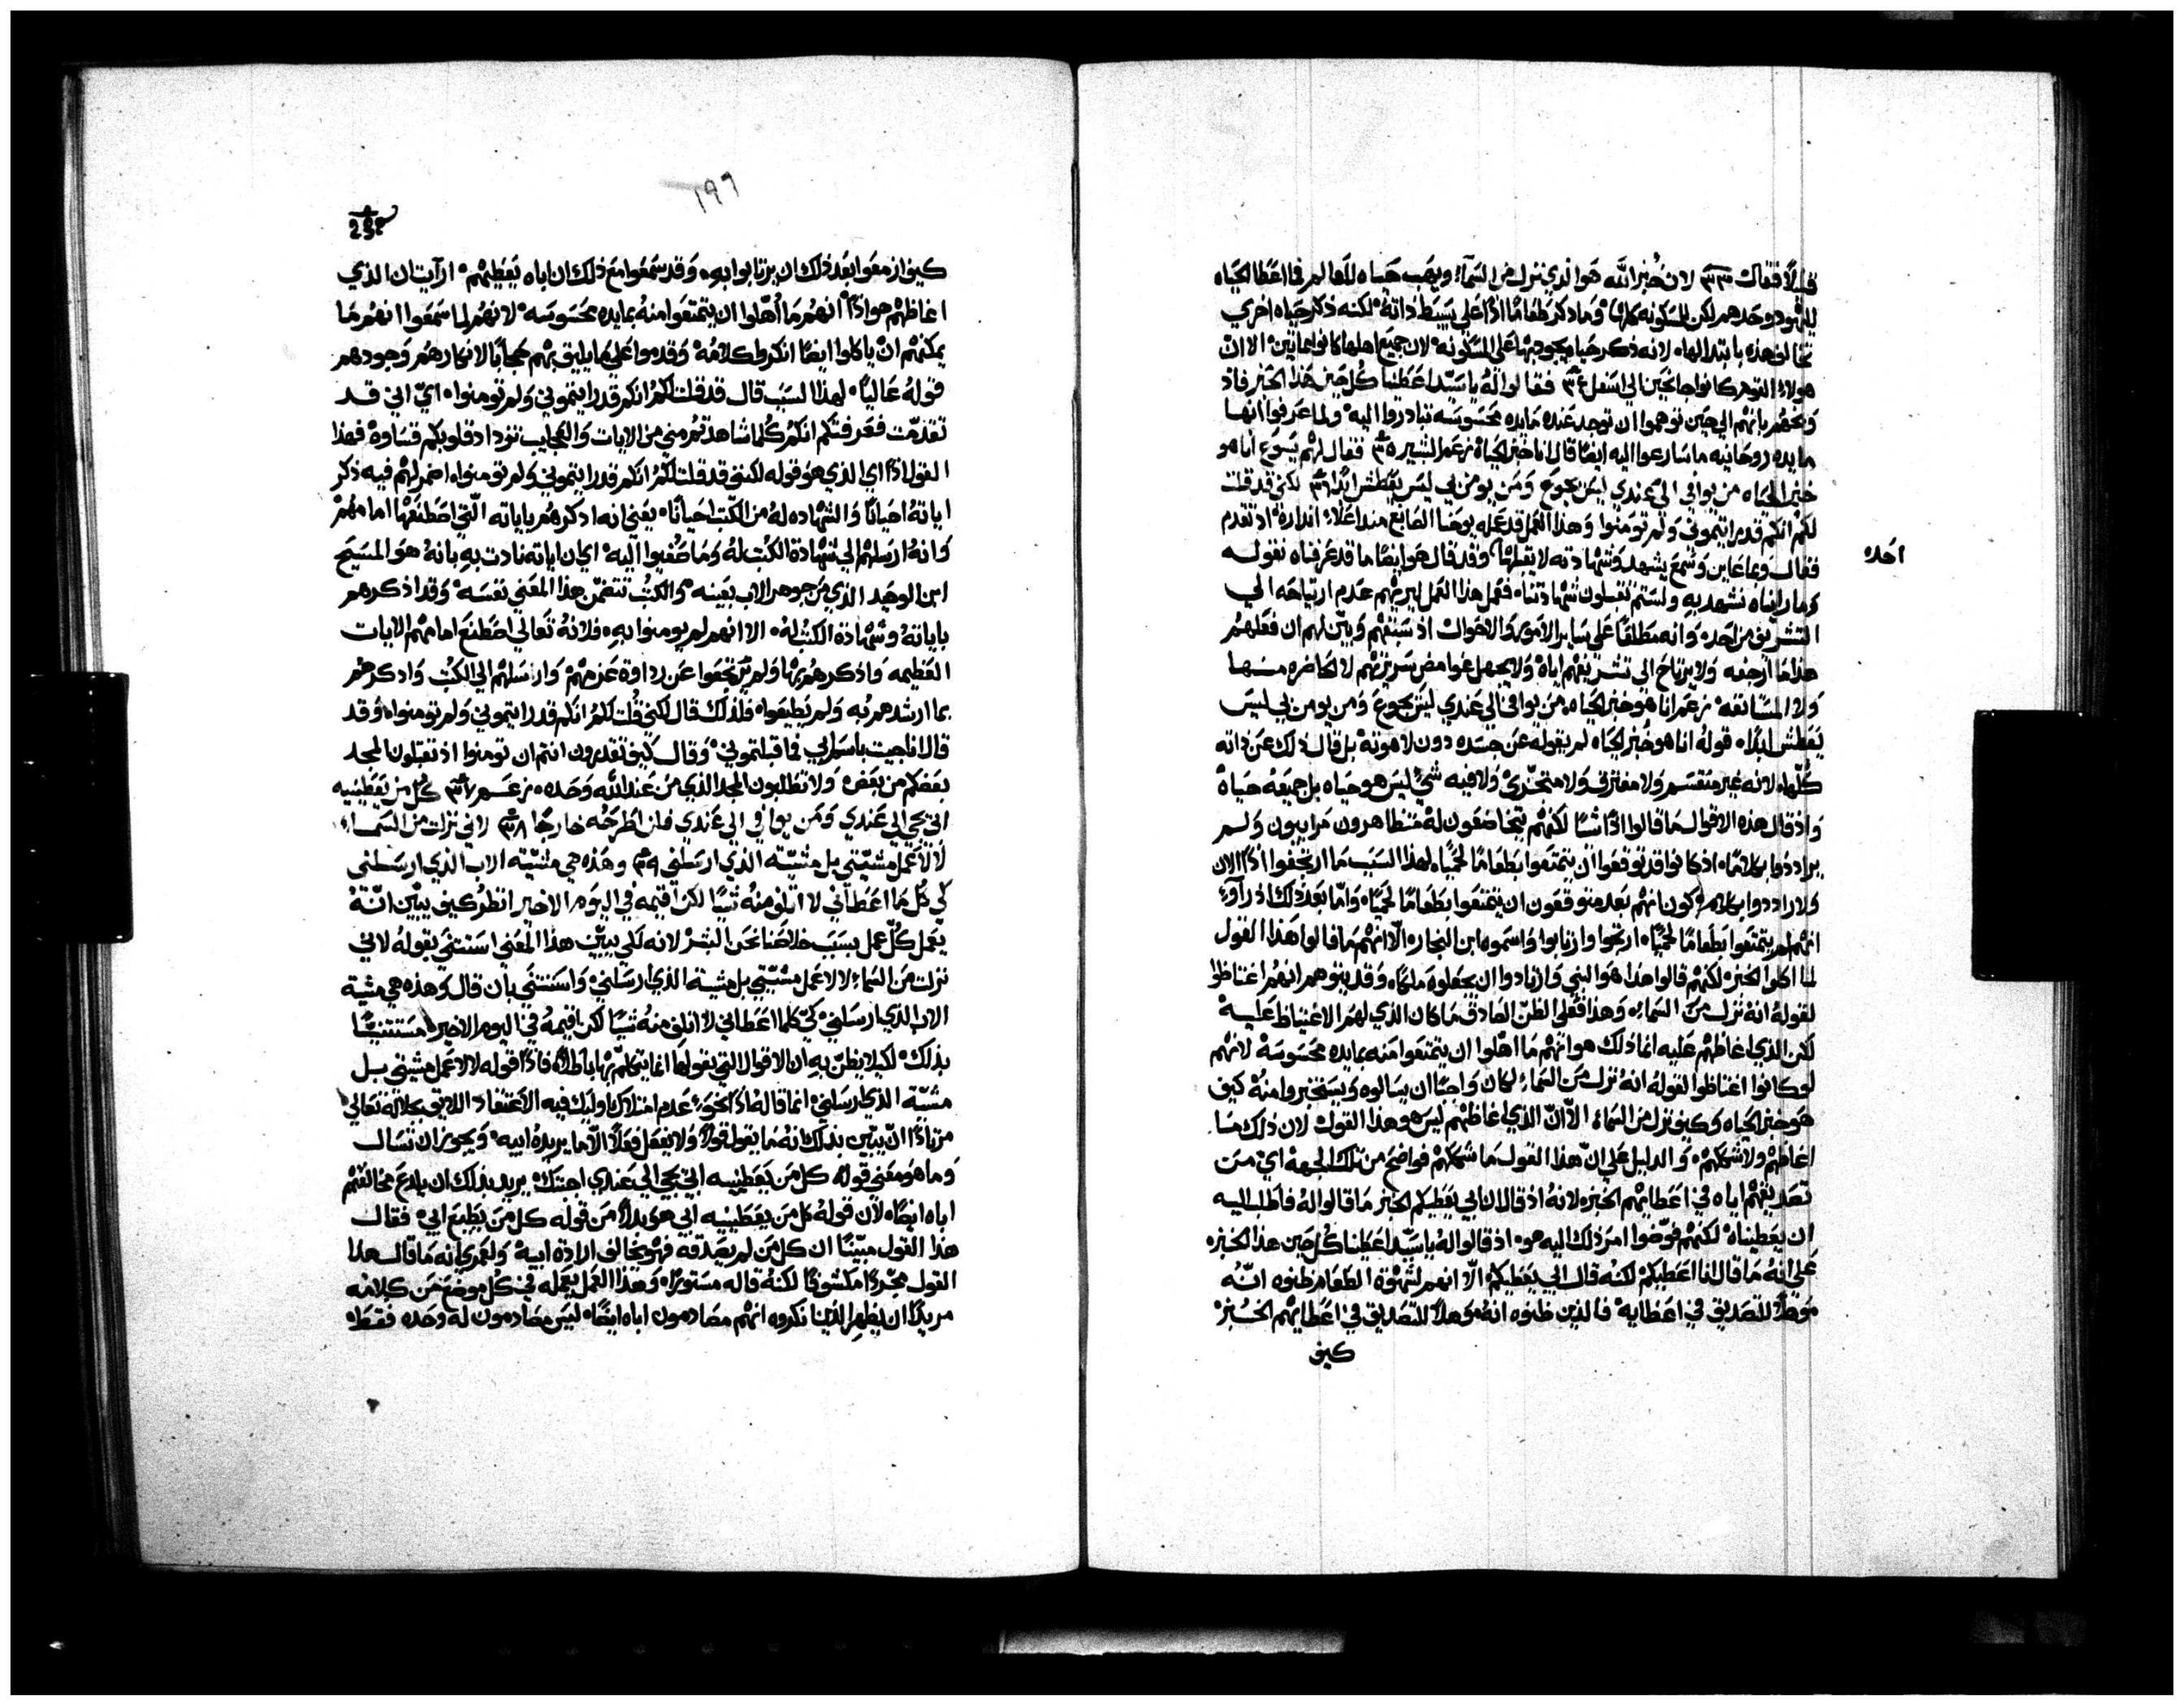 قبلاً فقال ٣٣ لان خُبز الله هو الذي نزل من السَمآءِ ويهب حياه للعالم فما اعَطا الحَياه
لليهود وحَدهم لكن للمسكونه كلها وَما ذكر طعَامًا اذًا على بسيط ذاته لكنه ذكر حَياه اخري
تخالف هذه بابتدالها لانه ذكر حَياه يجود بها على المسكونه لان جميع اهلها كانوا مايتين الا ان
هولاء القوم كانوا جانحَين الي اسَفل ٣٤ فقالوا لهُ يا سَيّد اعَطنا كل حين هَذا الخبز فاذ
وَبخهَم بانهم الي حين توهموا ان توجد عنده مَايده محَسوسَه تبادروا اليه ولما عَرفوا انها
مايده روحَانيه ما سَارعوا اليه ايضًا قال انا خبز الحَياه زعَم البشير ٣٥ فقال لهم يَسوع انا هو
خبز الحَياه من يوافي الي عَندي ليسَ يجوع وَمن يومن بي ليسَ يعَطش ابدًا ٣٦ لكني قد قلت
لكم انكم قد رايتموني ولم تومنوا وَهذا العَمل قد عَمله يوحَنا الصَابغ منذ اعَلاء انذاره اذ تقدم
فقال وما عَاين وَسَمع يشهد وَشهادته لا يقبلها احَد وَقد قال هوَ ايضًا ما قد عَرفناه نقوله
وما رايناه نشهد به ولستم تقبلون شهادتنا فعَمل هذا العَمل ليريهم عَدم ارتياحَه الي
التشريق من احَد وَانه مطلقًا على سَاير الامور وَالاحَوال اذ سَبقهم وَبيّن لهم ان فعَلهم
هذا ما ازعَجه ولا يرتاح الى تشريفهم اياه وَلا يجهل غوامض سَريرتهم لا الحَاضره منها
وَلا المسَتانفه زعَم انا هو خبز الحَياه من يوافي الي عَندي ليس يجوع وَمن يومن بي ليسَ
يَعَطش ابدًا قولهُ انا هو خُبز الحَياه لم يقوله عَن جسَده دون لاهوته بل قال ذلك عَن ذاته
كُلّها لانه غير منقسَم ولا مفترق ولا متحَيز ولا فيه شي ليسَ هو حياه بل جميعَهُ حَياة
وَاذ قال هذه الاقوال مَا قالوا اذًا شيًا لكنهم يتخاصَمون لهُ متظاهرون مَرايبون وَلم
يرادوا كلامًا اذ كانوا قد توقعَوا ان يتمتعَوا بطعَامًا لحَميًا لهذا السَبب مَا ارتجفوا اذًا الان
وَلا راددوا كلام كون انهم بَعَد متوقعَون ان يتمتعَوا بطَعَامًا لحَميًا وَامّا بعَد ذلك اذ رآوا
انهم لم يتمتعَوا بَطعَامًا لحَميًا ارتجوا وارتابوا وَاسَموه ابن النجار الّا انهم مَا قالوا هَذا القول
لما اكلوا الخبز لكنهم قالوا هذا هوَ النبي وَارادوا ان يجعَلوه مَلكًا وَقد يتوهم انهُم اغتاظوا
لقولهُ انهُ نزل مَن السَماءِ وَهذا فعَلى الظن الصَادق مَا كان الذي لهَم الاغتياظ عَليه
لكن الذي اغاظهم عَليه انما ذلك هو انهم مَا اهَلوا ان يتمتعَوا منه بمايده محَسوسَة لانهم
لو كانوا اغتاظوا لقوله انه نزل مَن السَماءِ لكان وَاجبًا ان يسَالوه وَيسَتخبروا منهُ كيف
هو خبز الحَياه وَكيف نزل من السَماءِ الّا ان الذي اغاظهم ليسَ هو هذا القول لان ذلك مَا
اغاظهم ولا شككهم وَالدليل عَلي ان هذا القول مَا شككهم فواضح من تلك الجهة اي من
تصَديقهم اياه في اعَطايهم الخبز لانهُ اذ قال ان ابي يَعَطيكم الخبز مَا قالوا لهُ فاطلب اليه
ان يعَطيناه لكنهم فوّضوا امر ذلك اليه هو اذ قالوا لهُ يا سَيّد اعَطينا كُل حَين هذا الخبز
عَلي انهُ مَا قال انا اعَطيكم لكنه قال ابي يعَطيكم الّا انهم لشهوة الطعَام ظنوه انّه
موهلاً للتصَديق في اعَطايه فالذين ظنوه انهُ موهلاً للتصَديق في اعَطايهم الخُبز
كيف
١٩٦
كيف ازمعَوا بعَد ذلك ان يرتابوا به وَقد سَمعَوا مَع ذلك ان اباه يَعَطيهم ارآيت ان الذي
اغاظهم هوا اذًا انهُم مَا أُهّلوا ان يتمتعَوا منهُ بمايده محَسوسَه لانهُم لما سَمعَوا انهُم مَا
يمكنهم ان ياكلوا ايضًا انكروا كلامُه وَقدموا على مَا يليق بهم حجابًا لانكارهُم وَجودهم
قولهُ عَاليًا لهذا السَبب قال قد قلت لكمُ انكم قد رايتموني وَلم تومنوا ايّ اني قد
تقدمّت فعَرفتكم انكمُ كُلما شاهدتم مني من الايات وَالعَجايب تزداد قلوبكم قسَاوة فهذا
القول اذًا اي الذي هوُ قوله لكنني قد قلت لكمُ انكم قد رايتموني وَلم تومنوا اضمر لهُم فيه ذكر
اياتهُ احيانًا وَالشهاده لهُ من الكتب احَيانًا يعَني انه اذكرهُم باياته التّي اصَطنعَها امامهمُ
وَانهُ ارسَلهمُ الي شهادة الكتب لهُ وَمَا صَغيوا اليه اي ان اياته نادت به بانهُ هوَ المسَيح
ابن الوحيد الذي من جوهر الاب بعَينه وَالكتُب تتضمّن هذا المعَني نفسَه وَقد اذكرهم
باياتهُ وَشهادة الكتُب لهُ الا انهم لم يومنوا به فلانهُ تَعَالي اصَطنعَ امامهُم الايات
العَظيمه وَاذكرهمُ بها وَلم يتنحَوا عَن رداوة عَزمهمْ وَارسَلهم الي الكتُب وَاذكرهُم
بما ارشدهم به وَلم يَطيعَوا فلذلك قال لكني قُلت لكمُ انكم قد رايتموني وَلم تومنوا وَقد
قال انا جيت باسَم ابي فما قبلتموني وَقال كيف تقدرون انتم ان تومنوا اذ تقبلون المجد
بعَضكم من بعَض وَلا تطلبون المجد الذي مَن عَند الله وَحَده زعَم ٣٧ كُل مَن يَعَطينيه
ابي يجي الي عَندي وَمَن يوافي الي عَندي فلن اطرحَه خارجًا ٣٨ لاني نزلت من السَماءِ
لا لاعَمل مشيّتي بل مشيّته الذي ارسَلني ٣٩ وَهذه هي مشيّه الاب الذي ارسَلني
كي كل مَا اعَطاني لا اتلف منهُ شيًا لكن اقيمه في اليوم الاخير انظر كيف يبيّن انّهُ
يعَمل كُلّ عَمل بسَبب خلاصَنا نحَن البشر لانه لكي يبيّن هذا المعَنى اسَتثنَي بقولهُ لاني
نزلت مَن السَماءِ لا لاعَمل مشيّتي بل مشية الذي ارسَلني وَاسَتثني بان قال وَهذه هي مشية
الاب الذي ارسَلني كي كلما اعَطاني لا اتلف منهُ شيًا لكن اقيمهُ في اليوم الاخير مَستثنيًا
بذلك لكيلا يظن به ان الاقوال التي يقولها انما يتكلم بها باطلاً فاذًا قوله لا لاعَمل مشيّتي بل
مشيّة الذي ارسَلني انما قالهُ اذًا نحَوَ عَدم امتلاك اوليك فيه الاعَتقاد اللايق بجلاله تعَالي
مَريدًا ان يبيّن بذلك انهُ مَا يقول قولاً وَلا يفعَل فعَلاً الّا ما يريدهُ ابيه وَيجوز ان تسَال
وما هوَ معَني قولهُ كل من يَعَطينيه ابي يجي الي عَندي اجبتك يريد بذلك ان يلدغ مخالفتهم
اباه ايضًا لان قولهُ كل من يعَطينيه ابي هو بدلاً من قوله كل من يطيع ابي فقال
هذا القول مبيّنًا ان كل من لم يصَدقه فهو يخالف ارادة ابيه وَلعَمري انه مَا قال هذا
القول مجّردًا مكشوفًا لكنهُ قاله مسَتورًا وَهذا العَمل يعَمله في كل موضعَ مَن كلامه
مريدًا ان يظهر للذين انكروه انهم مصَادمون اباه ايضًا ليسَ مصَادمون له وَحده فقطَ